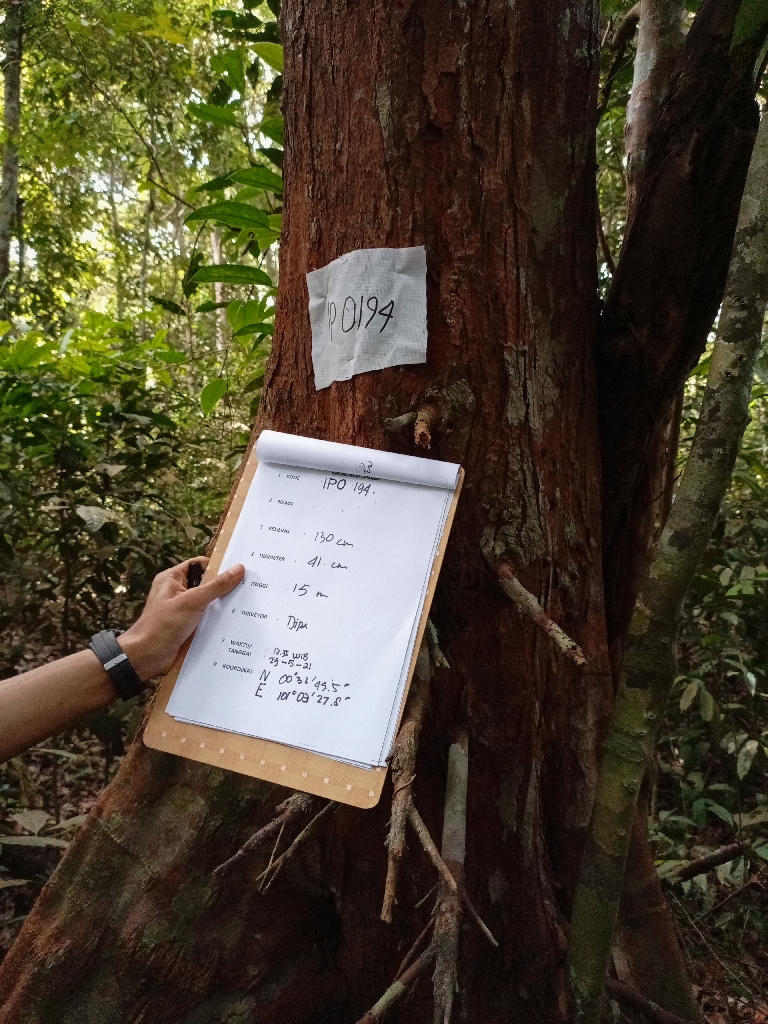 IPO194
1 KODE : IPO 194.
2 NAMA : . .
3 KELILING : 130 cm
4 DIAMETER : 41. cm
5 TINGGI : 15 m
6 SURVEYOR : Djipu
7 WAKTU/ : WIB
TANGGAL 29-5-21
8 KOORDINAT N 00°32'49.5"
E 101°03'27.8"